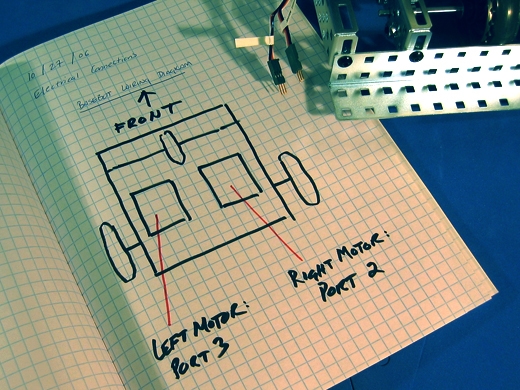 10/27/06
Electrical Connections
BaseBot Wiring Diagram
FRONT
RIGHT MOTOR:
PORT 2
LEFT MOTOR:
PORT 3